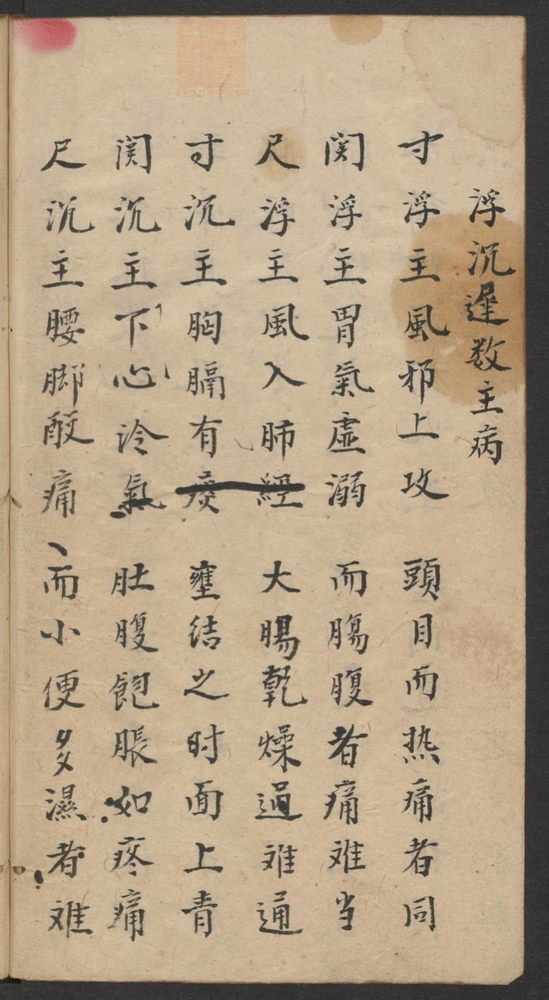 浮沉遲数主病
寸浮主風邪上攻 頭目而热痛者同
関浮主胃氣虛溺 而腸腹者痛难当
尺浮主風入肺經 大腸乾燥過难通
寸沉主胸膈有痰 壅結之时面上青
関沉主下心冷氣 肚腹飽脹如疼痛
尺沉主腰脚酸痛 而小便多濕者难